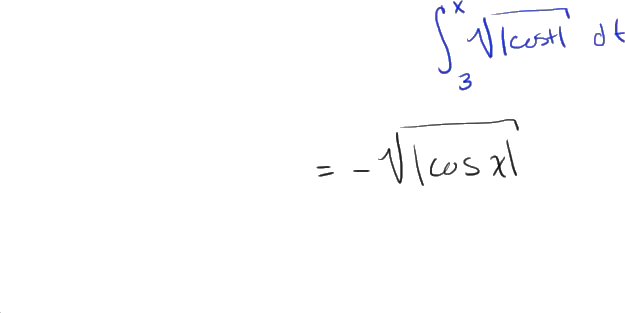 ∫₃ˣ √|cost| dt
= -√|cos x|